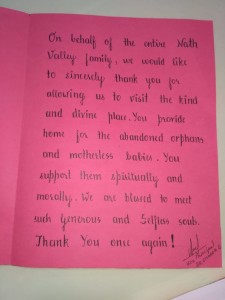 On behalf of the entire Nath
Valley family, we would like
to sincerely thank you for
allowing us to visit the kind
and divine place. You provide
home for the abandoned orphans
and motherless babies. You
support them spiritually and
morally. We are blessed to meet
such generous and selfless souls.
Thank You once again!